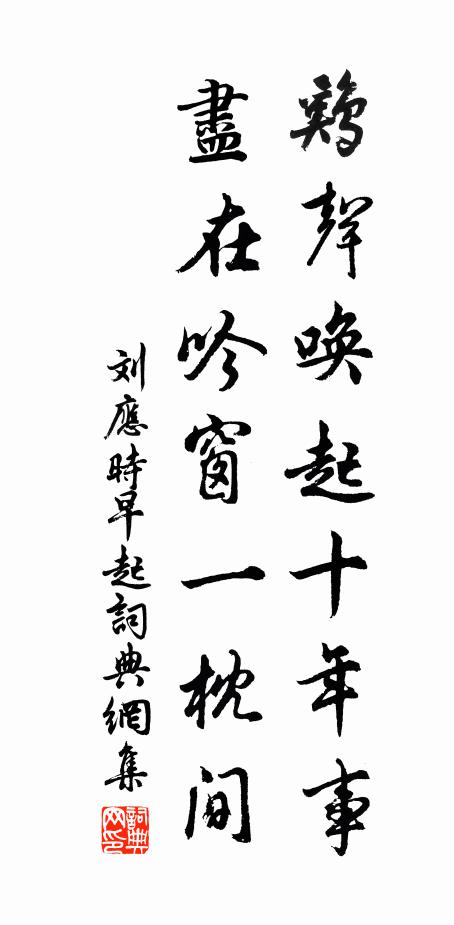 鷄聲喚起十年事
盡在吟窗一枕间
刘應時早起詞典網集
詞典網印